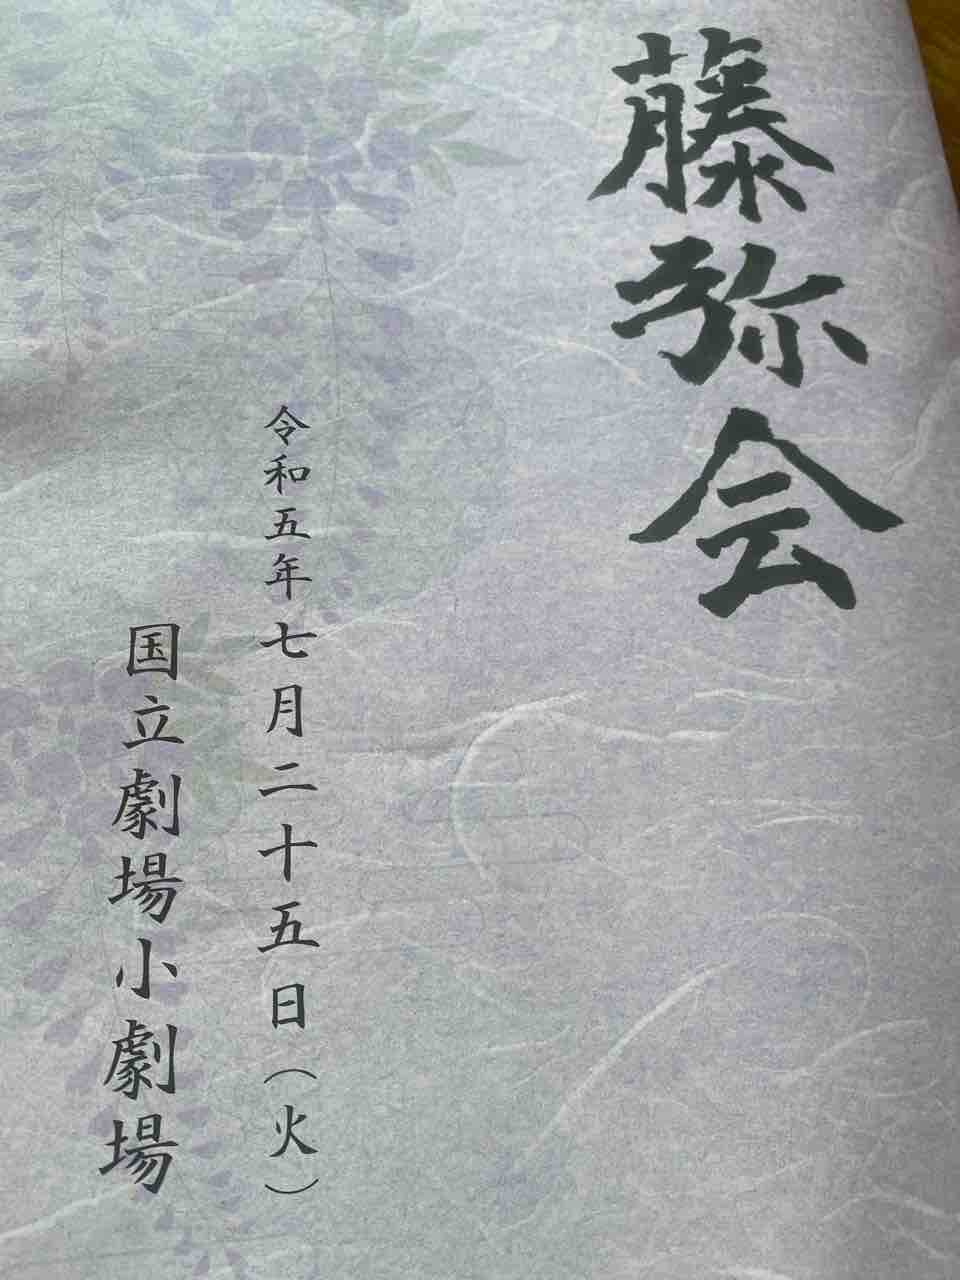 藤弥会
令和五年七月二十五日（火）
国立劇場小劇場